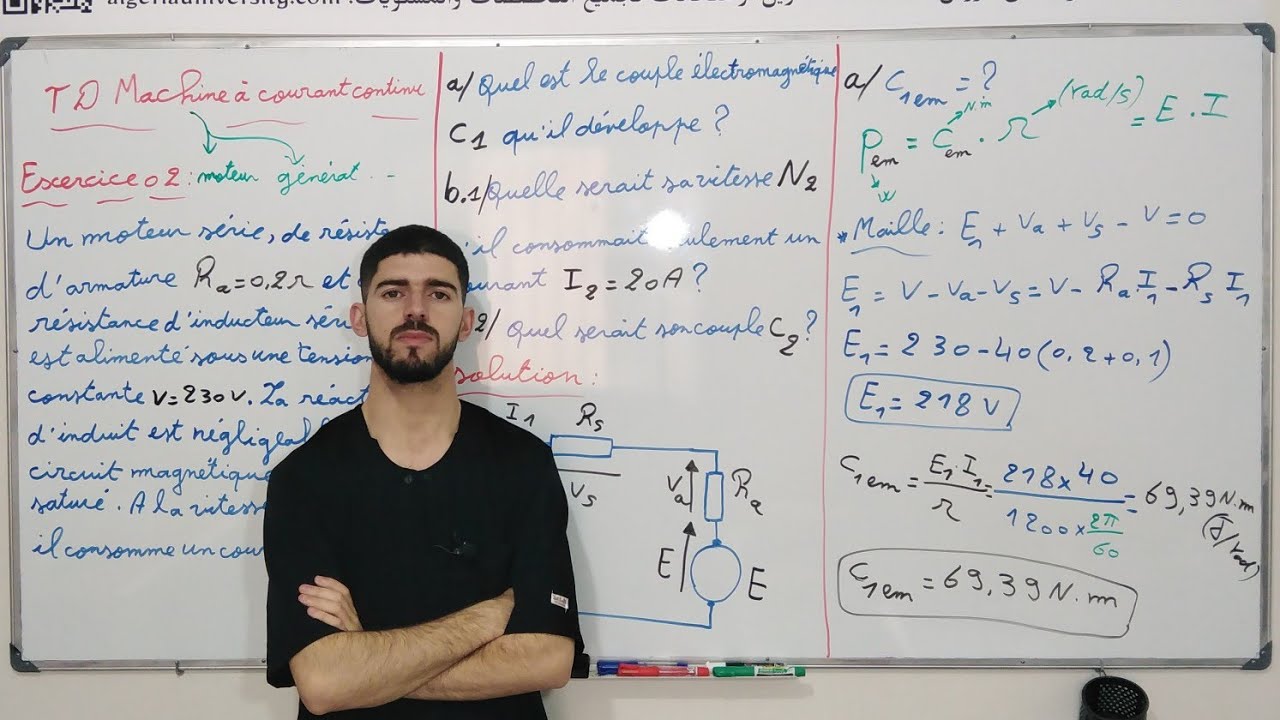 algeriauniversity.com
TD Machine à courant continu
Excercice 02 : moteur générat...
Un moteur série, de résist
d'armature Ra=0,2Ω et
résistance d'inducteur séri
est alimenté sous une tension
constante V=230V. La réact
d'induit est négligeabl
circuit magnétique
saturé. A la vitesse
il consomme un cou
a/ Quel est le couple électromagnétique
C1 qu'il développe ?
b.1/ Quelle serait sa vitesse N2
'il consommait eulement un
ourant I2=20A ?
2/ quel serait son couple C2 ?
solution :
I1
Rs
Vs
Va
Ra
E
E
a/ C1em = ?
N.m
(rad/s)
Pem = Cem . Ω = E . I
W
* Maille : E1 + Va + Vs - V = 0
E1 = V - Va - Vs = V - Ra.I1 - Rs I1
E1 = 230 - 40(0,2+0,1)
E1 = 218 V
C1em = E1.I1/Ω = 218x40/1200x2π/60 = 69,39 N.m
(J/rad)
C1em = 69,39 N.m